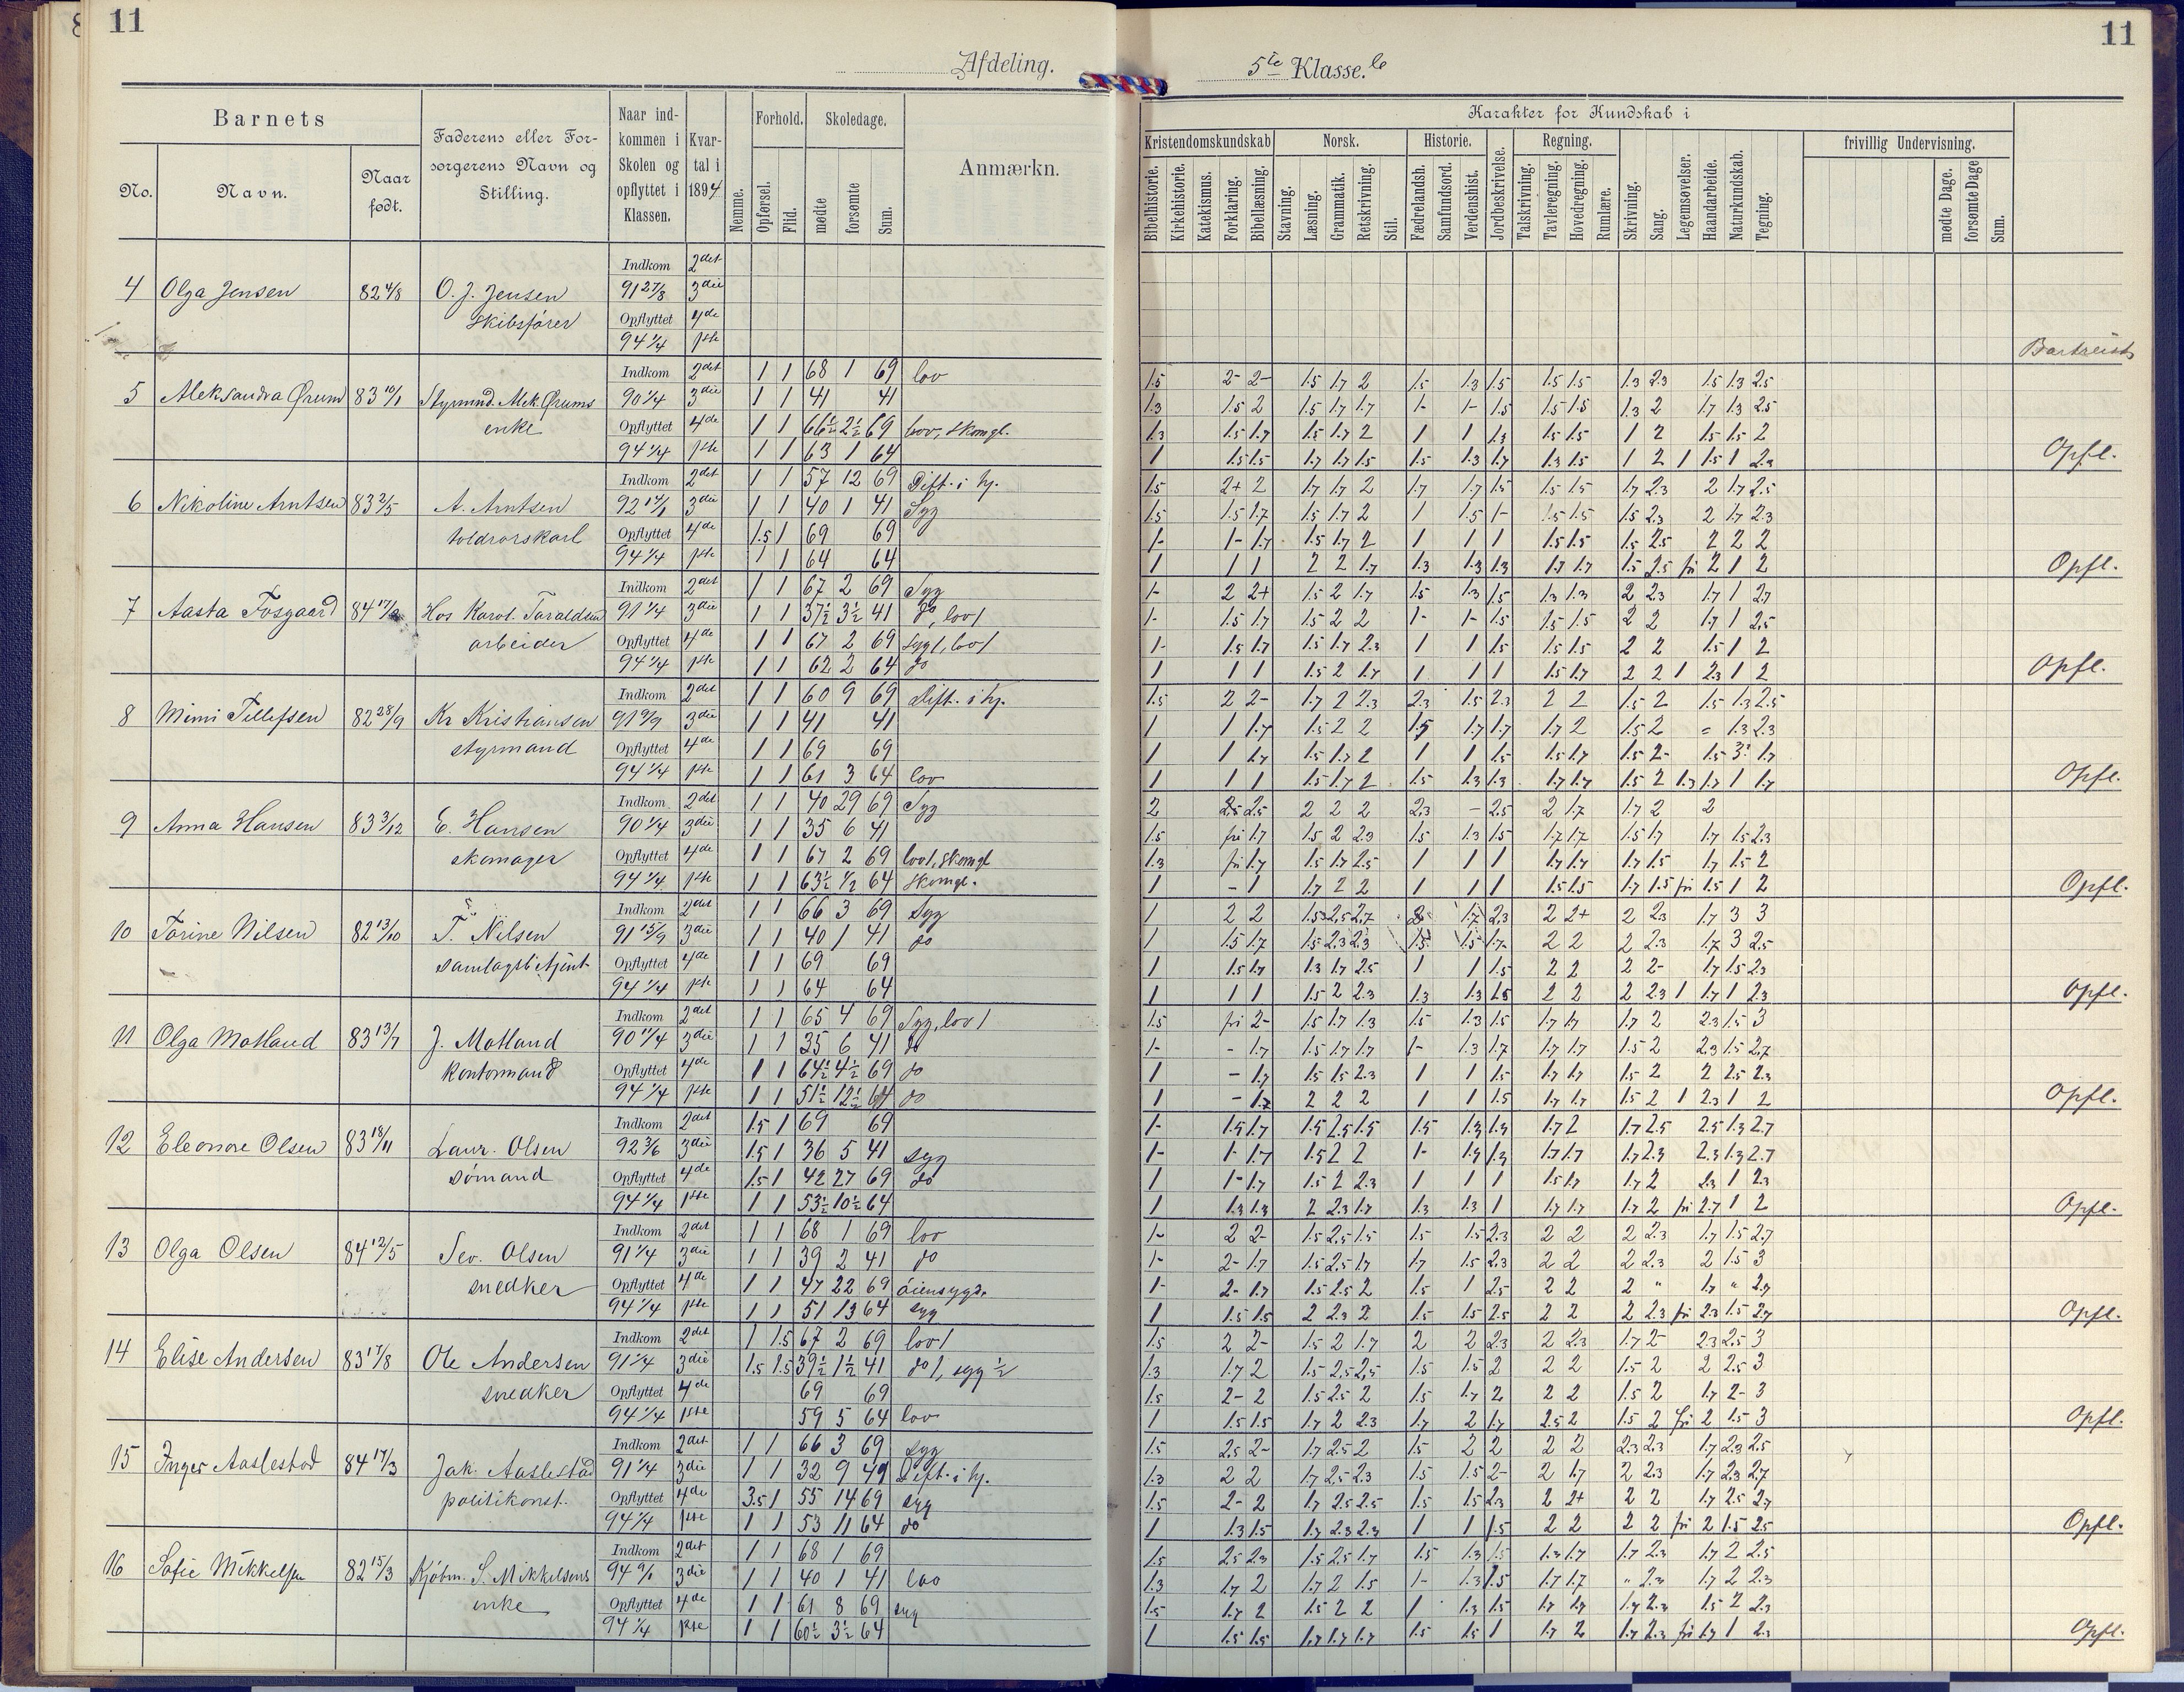 11
Afdeling.
Barnets
No.
Navn.
Naar født.
Faderens eller Forsørgerens Navn og Stilling.
Naar indkommen i Skolen og opflyttet i Klassen.
Kvartal i 1894
Nemme.
Forhold.
Opførsel.
Flid.
Skoledage.
mødte
forsømte
Sum.
Anmærkn.
4 Olga Jensen 82 4/8 O. J. Jensen Skibsfører
Indkom 2det
91 27/8 3die
Opflyttet 4de
94 1/4 1ste
5 Aleksandra Ørum 83 10/1 Styrmd. Alek. Ørums enke
Indkom 2det 1 1 68 1 69 lov
90 1/4 3die 1 1 41 41
Opflyttet 4de 1 1 66½ 2½ 69 lov, skomgl.
94 1/4 1ste 1 1 63 1 64
6 Nikoline Arntsen 83 2/5 A. Arntsen toldrorskarl
Indkom 2det 1 1 57 12 69 Dift. i hj.
92 14/1 3die 1 1 40 1 41 Syg
Opflyttet 4de 1.5 1 69 69
94 1/4 1ste 1 1 64 64
7 Aasta Fosgaard 84 Hos Karol. Taraldsen arbeider
Indkom 2det 1 1 67 2 69 Syg
91 1/4 3die 1 1 37½ 3½ 41 do, lov 1
Opflyttet 4de 1 1 67 2 69 syg 1, lov 1
94 1/4 1ste 1 1 62 2 64 do
8 Mimi Tellefsen 82 28/9 Kr Kristiansen styrmand
Indkom 2det 1 1 60 9 69 Dift. i hj.
91 9/9 3die 1 1 41 41
Opflyttet 4de 1 1 69 69
94 1/4 1ste 1 1 61 3 64 lov
9 Anna Hansen 83 3/12 E. Hansen skomager
Indkom 2det 1 1 40 29 69 Syg
90 1/4 3die 1 1 35 6 41
Opflyttet 4de 1 1 67 2 69 lov 1, skomgl
94 1/4 1ste 1 1 63½ 1/2 64 skomgl.
10 Torine Nilsen 82 13/10 T. Nilsen samlagsbetjent
Indkom 2det 1 1 66 3 69 Syg
91 15/9 3die 1 1 40 1 41 do
Opflyttet 4de 1 1 69 69
94 1/4 1ste 1 1 64 64
11 Olga Motland 83 13/7 J. Motland Kontormand
Indkom 2det 1 1 65 4 69 Syg, lov 1
90 3die 1 1 35 6 41 do
Opflyttet 4de 1 1 64½ 4½ 69 do
94 1/4 1ste 1 1 51½ 12½ 64 do
12 Eleonore Olsen 83 18/11 Laur. Olsen sømand
Indkom 2det 1.5 1 69 69
92 3/6 3die 1.5 1 36 5 41 syg
Opflyttet 4de 1.5 1 42 27 69 do
94 1/4 1ste 1 1 53½ 10½ 64
13 Olga Olsen 84 12/5 Sev. Olsen snedker
Indkom 2det 1 1 68 1 69 lov
91 1/4 3die 1 1 39 2 41 do
Opflyttet 4de 1 1 47 22 69 øiensygd.
94 1/4 1ste 1 1 51 13 64 syg
14 Elise Andersen 83 17/8 Ole Andersen snedker
Indkom 2det 1 1.5 67 2 69 lov 1
91 1/4 3die 1.5 1.5 39½ 1½ 41 do 1, syg ½
Opflyttet 4de 69 69
94 1/4 1ste 59 5 64 lov
15 Inger Aaslestad 84 17/3 Jak. Aaslestad politikonst.
Indkom 2det 1 1 66 3 69 syg
91 1/4 3die 1 1 32 9 41 Dift. i hj.
Opflyttet 4de 3.5 1 55 14 69 syg
94 1/4 1ste 1 1 53 11 64 do
16 Sofie Mikkelsen 82 15/3 Kjøbm. S. Mikkelsens enke
Indkom 2det 1 1 68 1 69
94 9/1 3die 1 1 40 1 41 lov
Opflyttet 4de 1 1 61 8 69 syg
94 1/4 1ste 1 1 60½ 3½ 64
11
5te Klasse. b
Karakter for Kundskab i
Kristendomskundskab
Norsk.
Historie.
Regning.
frivillig Undervisning.
Bibelhistorie.
Kirkehistorie.
Katekismus.
Forklaring.
Bibellæsning.
Stavning.
Læsning.
Grammatik.
Retskrivning.
Stil.
Fædrelandsh.
Samfundsord.
Verdenshist.
Jordbeskrivelse.
Talskrivning.
Tavleregning.
Hovedregning.
Rumlære.
Skrivning.
Sang.
Legemsøvelser.
Haandarbeide.
Naturkundskab.
Tegning.
mødte Dage.
forsømte Dage
Sum.
Bortreist
1.5 2- 2- 1.5 1.7 2 1.5 1.3 1.5 1.5 1.5 1.3 2.3 1.5 1.3 2.5
1.3 1.5 2 1.5 1.7 1.7 1- 1- 1.5 1.5 1.5 1.3 2 1.7 1.3 2.5
1.3 1.5 1.7 1.5 1.7 2 1 1 1.3 1.5 1.5 1 2 1.5 1.5 2
1 1.5 1.5 1.7 1.7 1.5 1.5 1.3 1.7 1.3 1.5 1 2 1 1.5 1 2.3 Opfl.
1.5 2+ 2 1.7 1.7 2 1.7 1.7 1.5 1.5 1.5 1.7 2.3 2 1.7 2.5
1.5 1.5 1.7 1.5 1.7 2 1 1.5 1- 1.5 1.5 1.5 2.3 2 1.7 2.3
1- 1- 1.7 1.5 1.7 2 1 1 1 1.5 1.5 1.5 2.5 2 2 2
1 1 1 2 2 1.7 1.3 1.3 1.3 1.7 1.7 1.5 2.5 fri 2 1 2 Opfl.
1- 2 2+ 1.5 2 1.7 1.5 1.3 1.5 1.3 1.3 2 2.3 1.7 1 2.7
1- 1.5 1.7 1.5 2 2 1- 1- 1.5 1.5 1.5 2 2 1.7 1 2.5
1- 1.5 1.7 1.5 1.7 2.3 1 1 1.5 1.5 1.5 2 2 1.5 1 2
1 1 1 1.5 2 1.7 1 1 1 1.5 1.7 2 2 1 2.3 1 2 Opfl.
1.5 2 2- 1.7 2 2.3 2.3 1.5 2.3 2 2 1.5 2 1.5 1.3 2.5
1 1 1.7 1.5 2 2 1.5 1.7 1.7 1.7 2 1.5 2 = 1.3 2.3
1 1 1.7 1.5 1.7 2 1 1 1.5 1.5 1.7 1.5 2- 1.5 3 1.7
1 1 1 1.5 1.7 2 1.5 1.3 1.3 1.7 1.7 1.5 2 1.3 1.7 1 1.7 Opfl.
2 2.5 2.5 2 2 2 2.3 - 2.5 2 1.7 1.7 2 2
1.5 fri 1.7 1.5 2 2.3 1.5 1.3 1.5 1.7 1.7 1.5 1.7 1.7 1.5 2.3
1.3 fri 1.7 1.5 1.7 2.5 1 1 1 1.7 1.7 1.7 1.5 1.7 1.5 2
1 - 1 1.7 2 2 1 1 1 1.5 1.5 1.7 1.5 fri 1.5 1 2 Opfl.
1 2 2 1.5 2.5 2.7 2 1.7 2.3 2 2+ 2 2.3 1.7 3 3
1 1.5 1.7 1.5 2.3 2.3 1.5 1.5 1.7 2 2 2 2.3 1.7 3 2.5
1 1.5 1.7 1.3 1.7 2.5 1 1 1.5 2 2 2 2- 1.7 1.5 2.3
1 1 1 1.5 2 2.3 1.3 1.3 1.5 2 2 2 2.3 1 1.7 1 2.3 Opfl.
1.5 fri 2- 1.5 1.7 1.3 1.5 1.3 1.5 1.7 1.7 1.7 2 2.3 1.5 3
1- - 1.7 1.5 1.7 1.7 1- 1.3 1.7 1.7 1.7 1.5 2 2.3 1.5 2.7
1 - 1.7 1.5 1.5 2.3 1 1 1.5 1.7 1.7 1.5 2 2 2.5 2.3
1 - 1.7 2 2 2 1 1 1.5 1.7 1.7 1.5 2 1 2.3 1 2 Opfl.
1- 1.5 1.7 1.5 2.5 1.5 1.5 1.3 1.3 1.7 2 1.7 2.5 2.5 1.3 2.7
1- 1- 1.7 1.5 2 2 1- 1.3 1.3 1.7 1.7 1.7 2.3 2.3 1.3 2.7
1 1- 1.7 1.5 2 2.3 1 1 1 1.5 1.7 1.7 2 2.3 1 2.3
1 1.3 1.3 2 2.3 1.7 1.3 1.3 1 1.7 1.7 1.7 2 fri 2.7 1 2 Opfl.
1- 2 2- 1.5 2.5 1.5 1.5 1.5 2.3 2 2 2 2.3 1.7 1.5 2.7
1- 2- 1.7 1.5 2.5 1.7 1.7 1.5 2.3 2 2 2 2.3 2 1.5 3
1- 2- 1.7 1.5 2.5 2 1.5 1 2.5 2 2 2 " 1.7 " 2.7
1 1.5 1.5 2 2.3 2 1.5 1.5 2.5 2 2 2 2.3 fri 2.3 1.5 2.7 Opfl.
1.5 2 2- 1.5 2 1.7 2 2 2.3 2 2.3 1.7 2- 2.3 2.5 3
1.3 1.7 2 1.5 2.5 2.5 1.5 1.5 2 2 2 1.5 2 2 2.5 3
1.5 2- 2 1.5 2.5 2 1.5 1.7 2 2 2 1.5 2 1.7 2- 3
1 1.5 1.5 1.7 2 2.3 1.7 2 1.7 2.5 2 1.5 2 fri 2 1.5 3 Opfl.
1.5 2.5 2- 1.7 2.5 2 1.5 2 2 2 2 2.3 2.3 1.7 2.3 2.5
1.3 2 2 1.7 2.5 2.3 1.5 1.5 2- 2 1.7 2 2.3 1.7 2.3 2.7
1.5 2- 2 1.7 2.5 2.5 1.5 1.5 2.3 2 2+ 2 2 1.7 2.5 2.7
1 1.3 1.5 1.7 2.3 2.3 1 1 1.5 2 2 2 2 fri 2 1.5 2.5 Opfl.
1.5 2.5 2.3 1.5 2.5 1.7 1.5 1.3 1.5 1.3 1.7 1.7 2.3 1.7 2 2.5
1.3 1.7 2 1.7 2 1.5 1- 1.3 1.5 1.7 1.7 " 2.3 1.7 2 2.3
1.5 1.7 2 1.5 2 2 1 1.3 1.5 1.7 1.7 1.7 2.3 1.5 2 2.3
1 1.5 1.5 1.7 1.7 1.7 1.5 1.5 1 1.7 2 1.7 2.3 fri 1.7 1 2.3 Opfl.